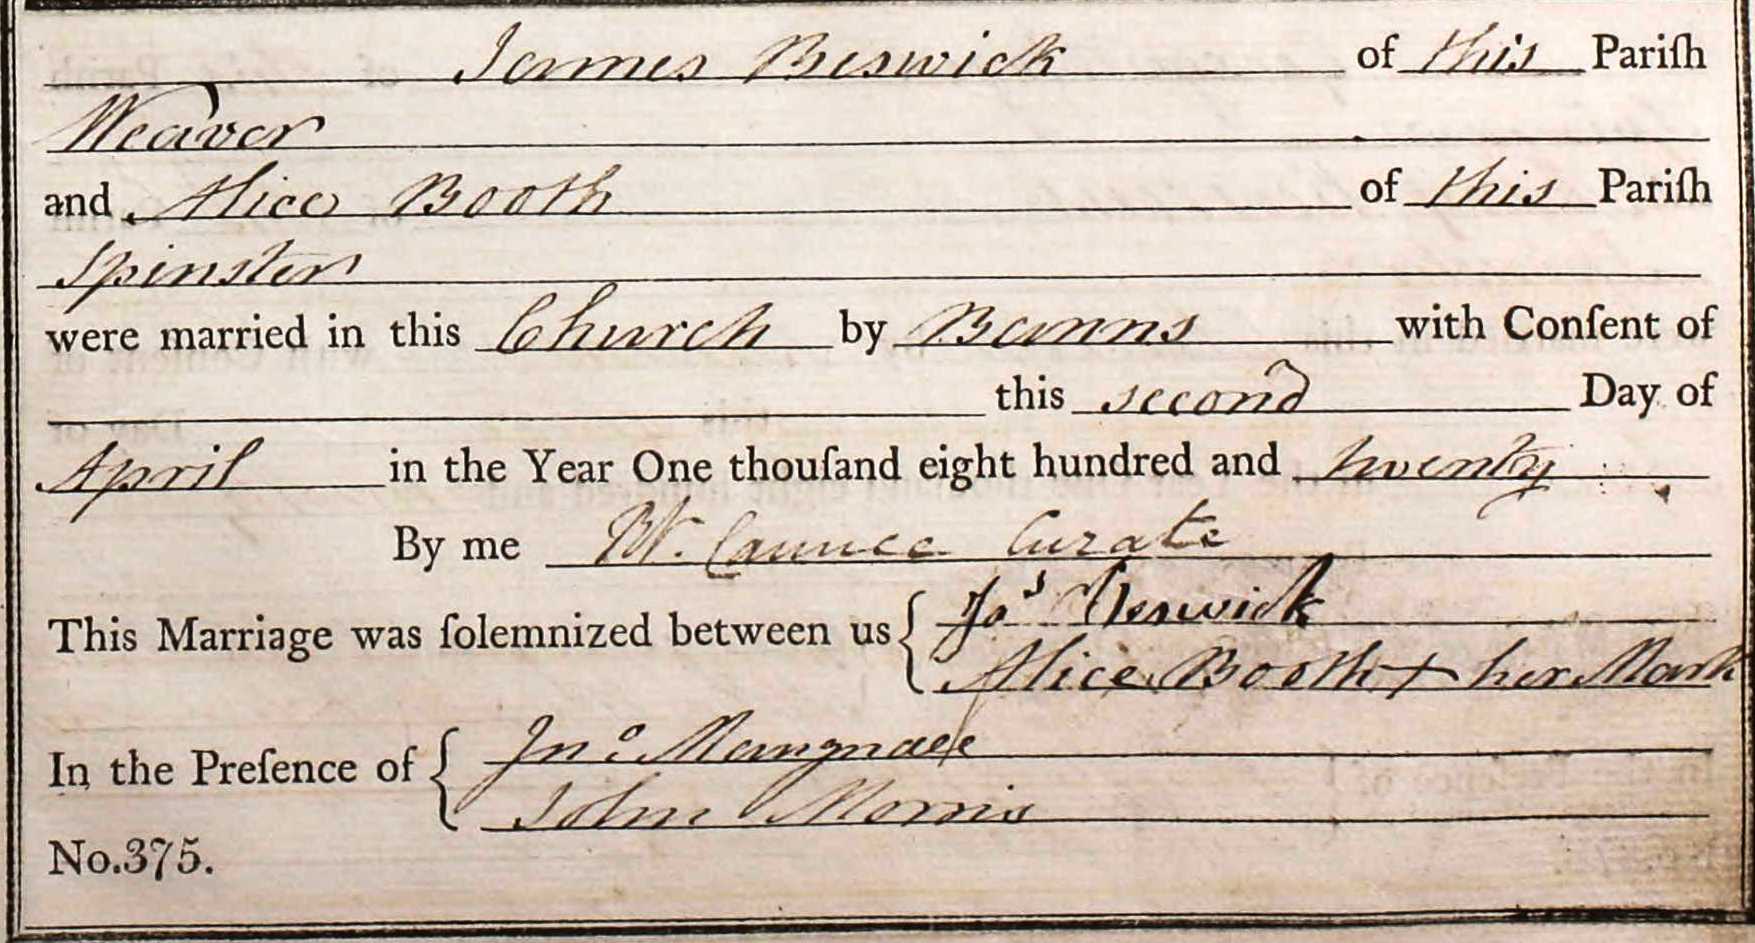 James Beswick of this Pariſh
Weaver
and Alice Booth of this Pariſh
Spinster
were married in this Church by Banns with Conſent of
this second Day of
April in the Year One thouſand eight hundred and twenty
By me W. Cunnec Curate
This Marriage was ſolemnized between us { Jas Beswick
Alice Booth + her Mark
In the Preſence of { Jno Mangnall
John Morris
No.375.